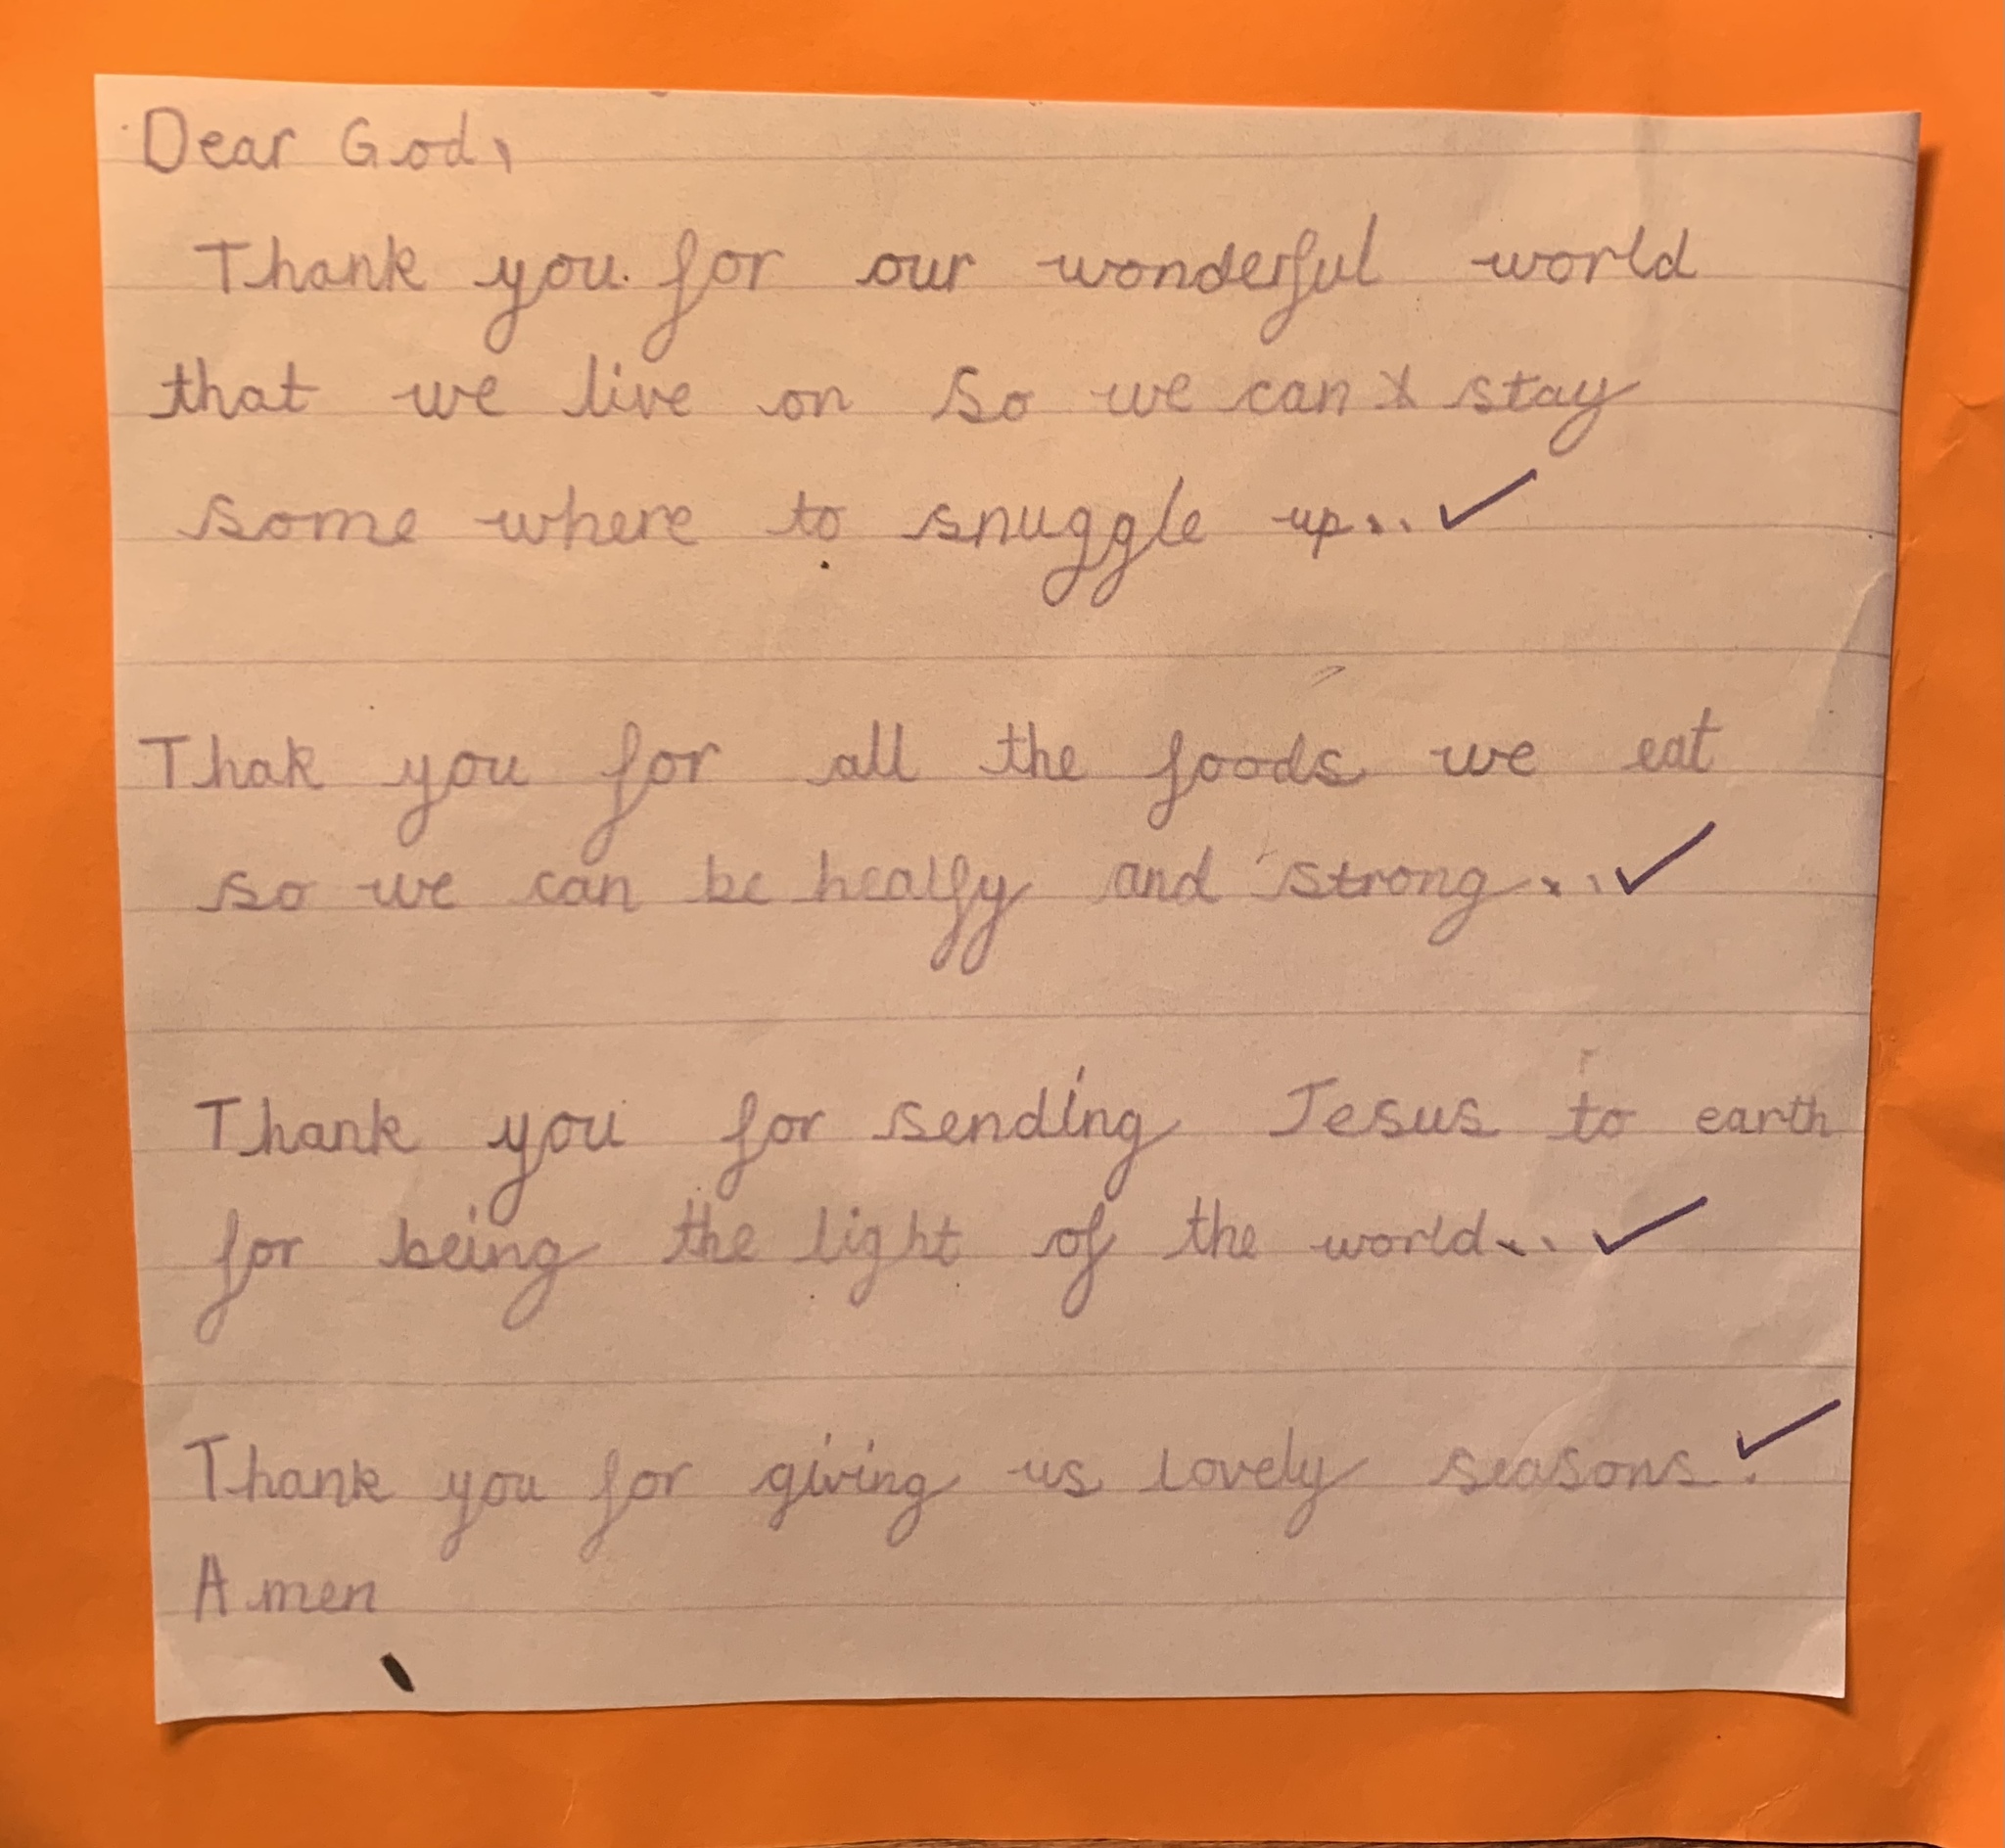 Dear God,
Thank you for our wonderful world
that we live on so we can stay
some where to snuggle up...
Thak you for all the foods we eat
so we can be healfy and strong...
Thank you for sending Jesus to earth
for being the light of the world...
Thank you for giving us lovely seasons.
Amen